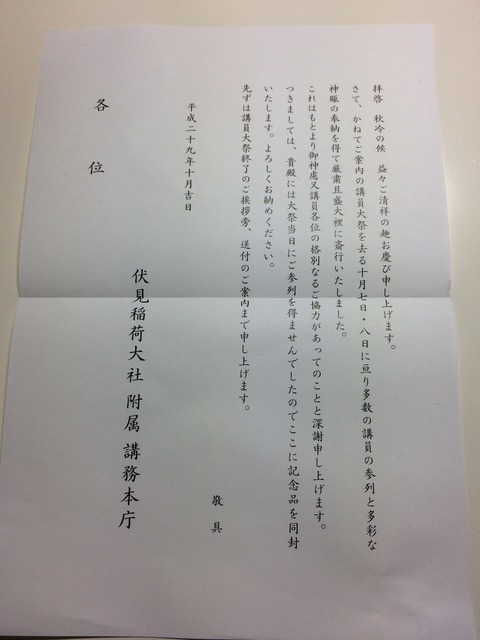 拝啓　秋冷の候　益々ご清祥の趣お慶び申し上げます。
さて、かねてご案内の講員大祭を去る十月七日・八日に亘り多数の講員の参列と多彩な
神賑の奉納を得て厳粛且盛大裡に斎行いたしました。
これはもとより御神慮又講員各位の格別なるご協力があってのことと深謝申し上げます。
つきましては、貴殿には大祭当日にご参列を得ませんでしたのでここに記念品を同封
いたします。よろしくお納めください。
先ずは講員大祭終了のご挨拶旁、送付のご案内まで申し上げます。
敬具
平成二十九年十月吉日
伏見稲荷大社 附属 講務本庁
各位